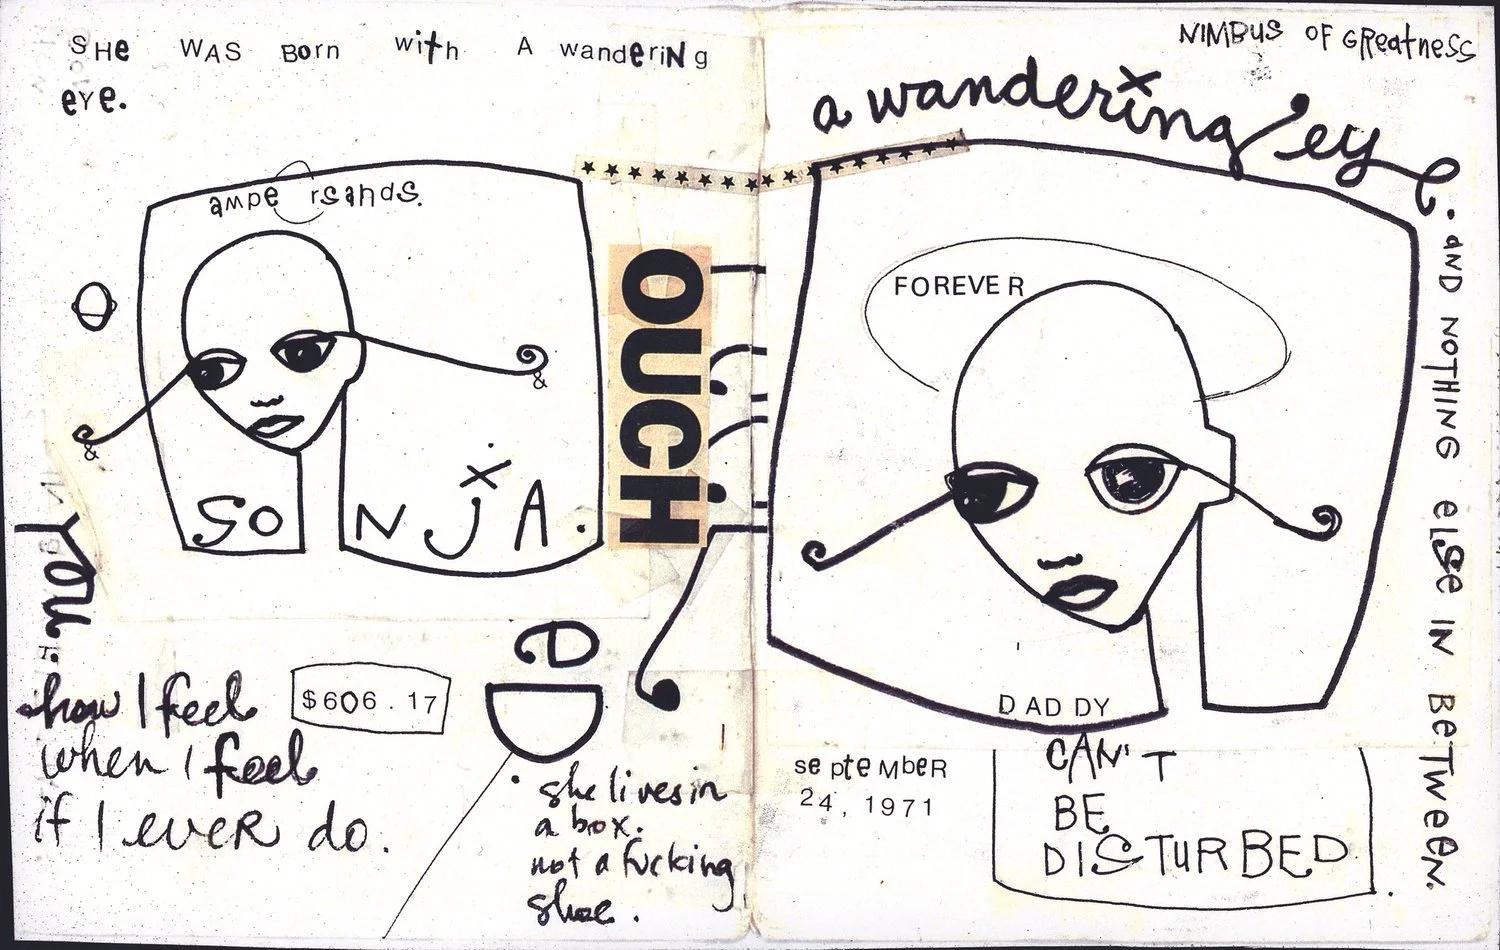 SHe WAS Born with A wanderiNg
eYe.
ampe rsands.
&
&
SO NJA.
OUCH
eD
You.
how I feel
when I feel
if I eveR do.
$606.17
she lives in
a box.
not a fucking
shoe.
NIMBUS OF GReatness
a wandering eye.
aND NOTHING eLSe IN BeTweeN.
FOREVER
DADDY
CAN'T
BE
DISTURBED.
se pte MbeR
24, 1971